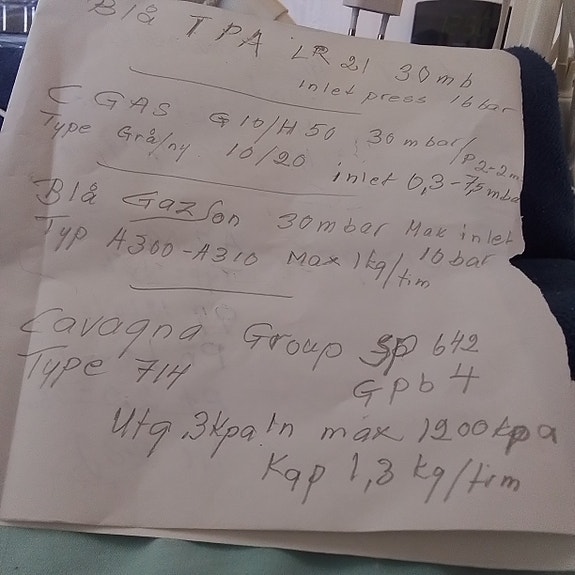 Blå TPA LR 21 30mb
inlet press 16 bar
C GAS G10/H50 30 mbar/
Type Grå/ny 10/20 inlet 0,3-7,5mba
Blå Gaz Son 30mbar Max inlet
Typ A300-A310 Max 1kg/tim 10bar
Cavagna Group Sp 642
Type 714 GPb 4
Utg 3kpa In max 1200 kpa
Kap 1,3 kg/tim